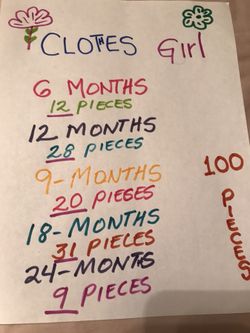 CLOTHES Girl
6 MONTHS
12 PIECES
12 MONTHS
28 PIECES
9-MONTHS
20 PIESES
18-MONTHS
31 PIECES
24-MONTHS
9 PIECES
100
PIECES